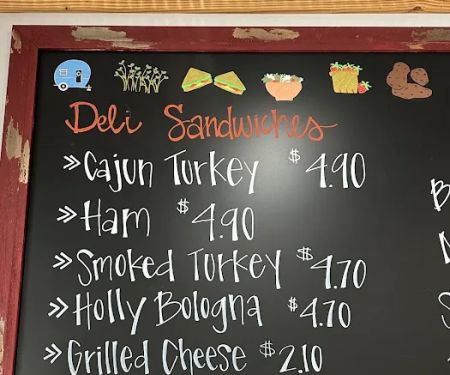 Deli Sandwiches
» Cajun Turkey $4.90
» Ham $4.90
» Smoked Turkey $4.70
» Holly Bologna $4.70
» Grilled Cheese $2.10